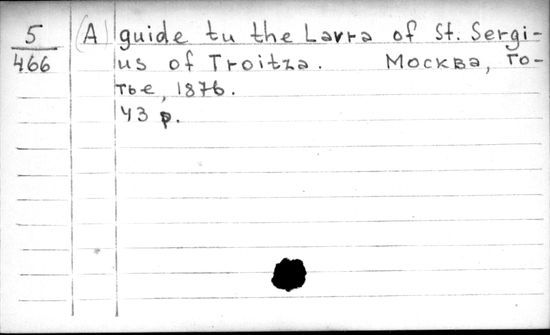 5 (A) guide tu the Lavra of St. Sergi-
466 us of Troitza. Москва, Го-
тье, 1876.
43 p.